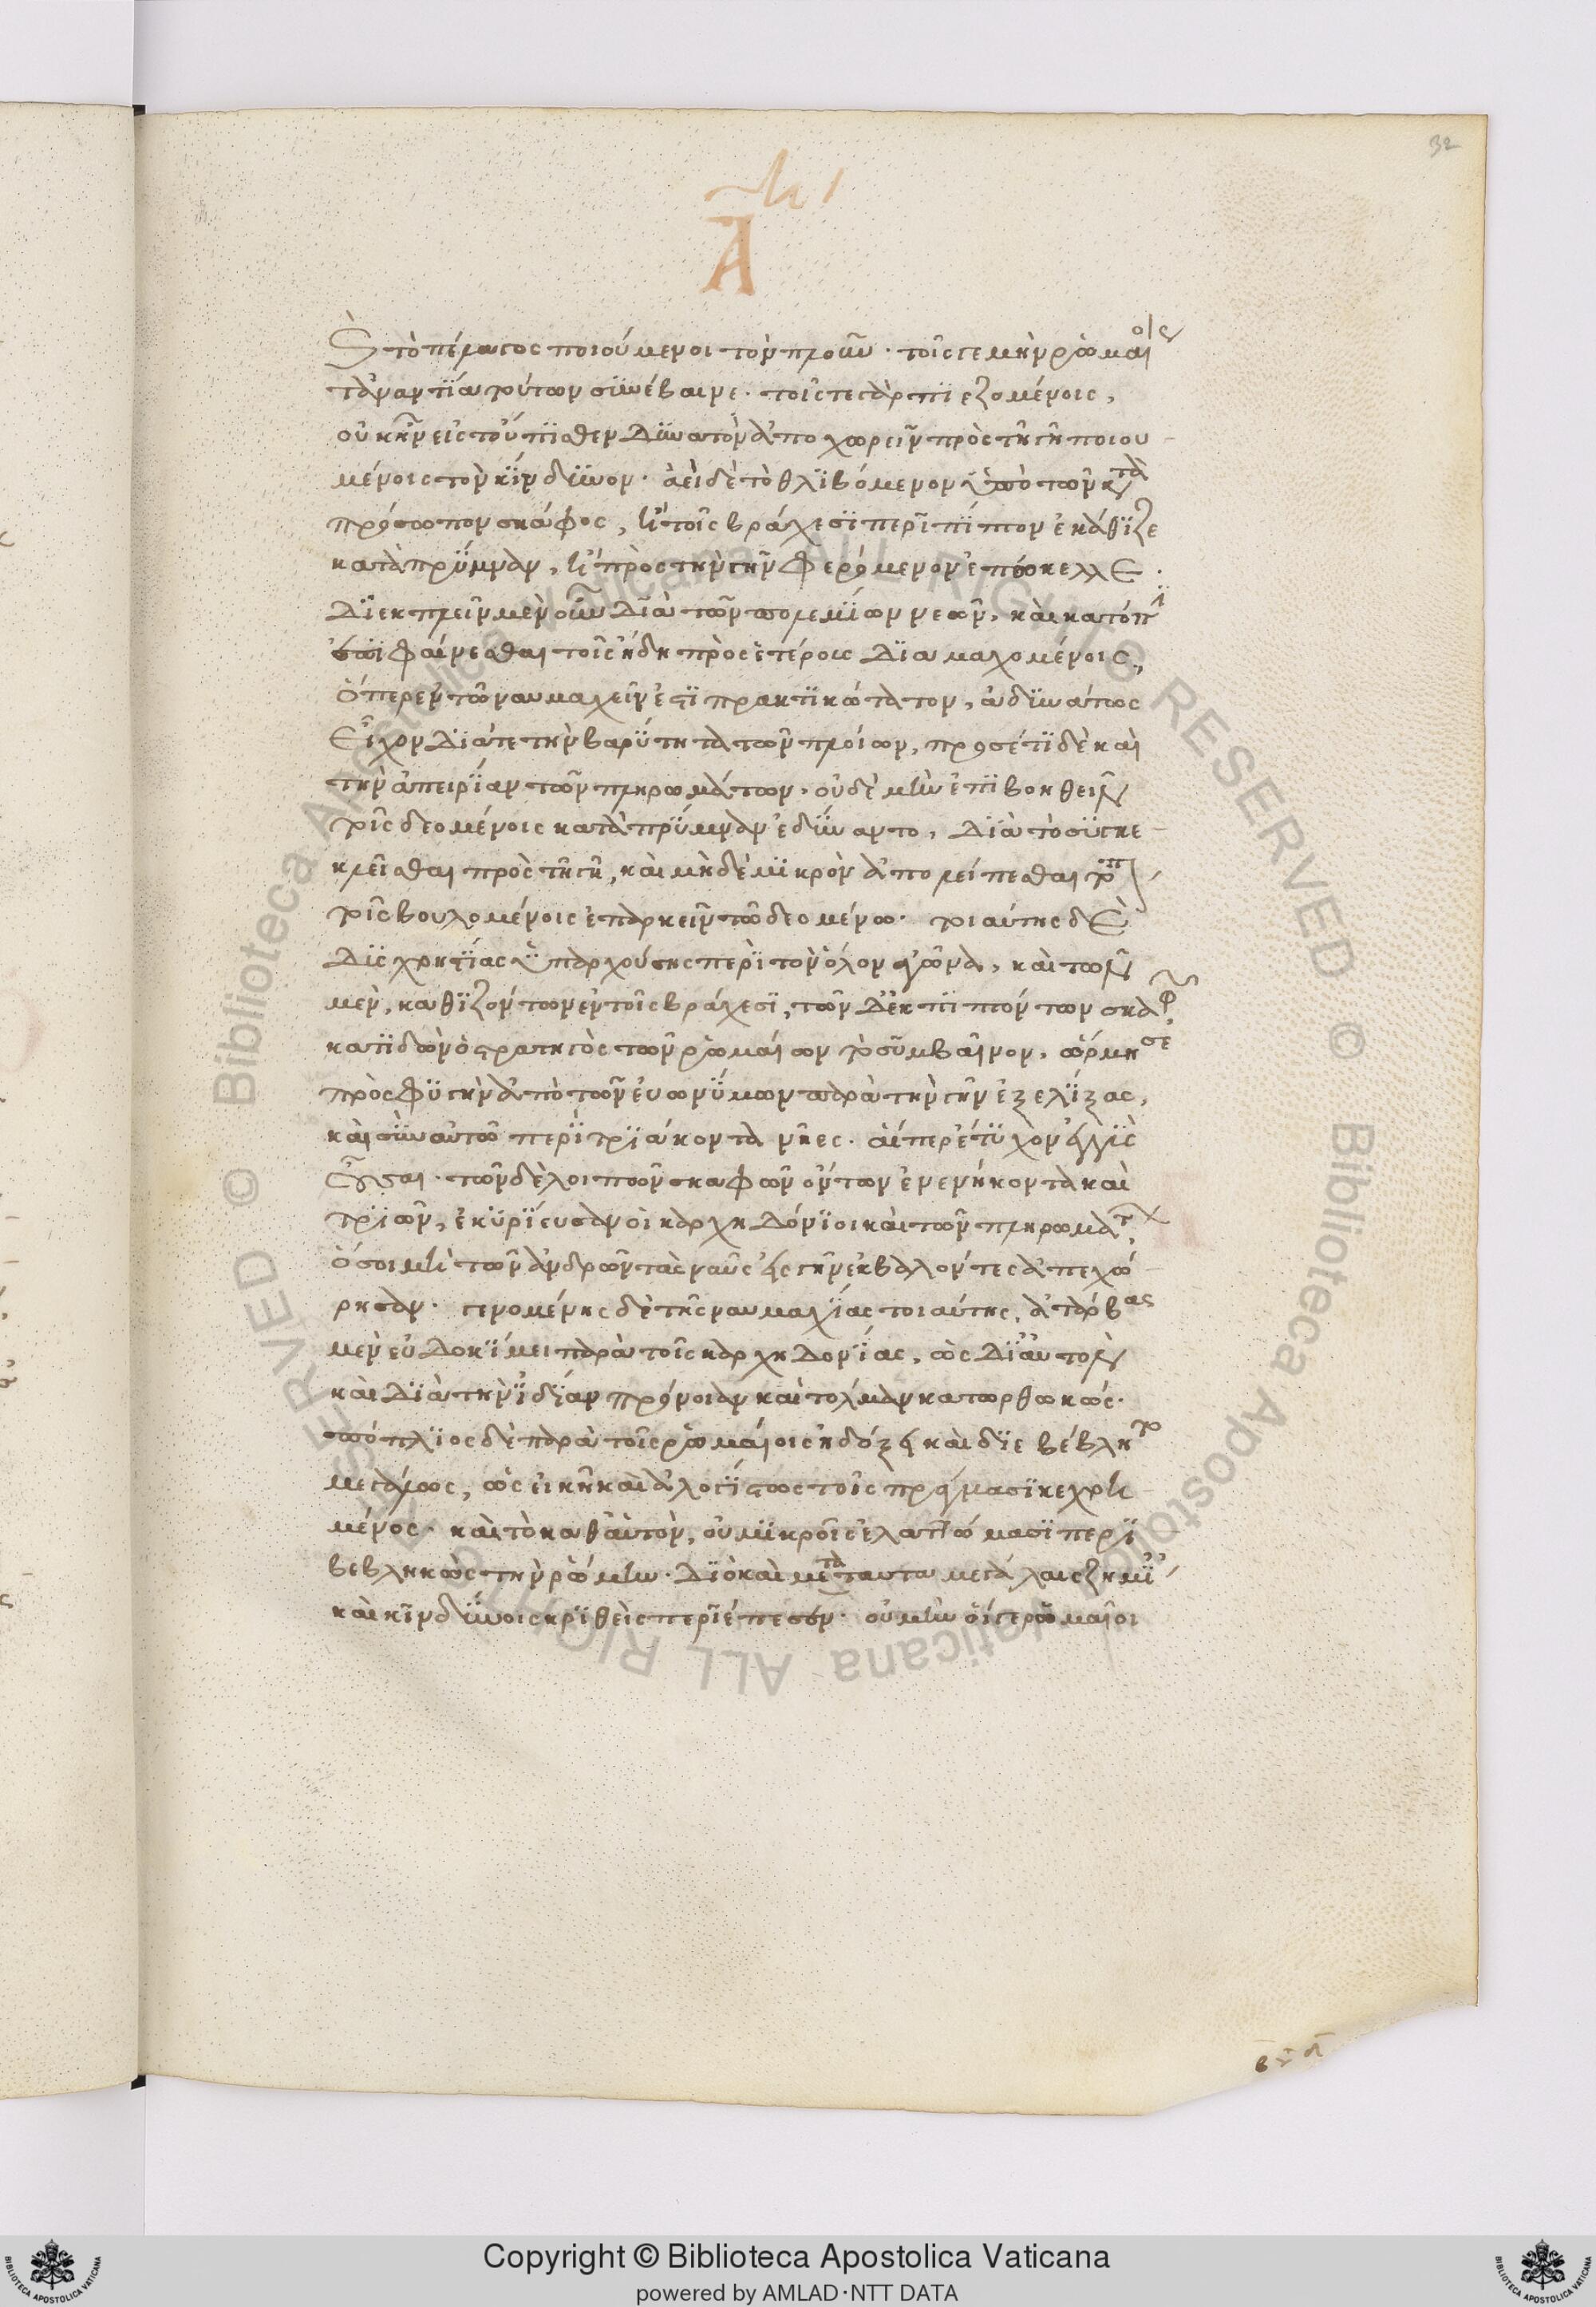 Ἁλι
Ā
32
Εἰς τὸ πέλαγος ποιούμενοι τὸν πλοῦν · τοῖς γε μὴν ῥωμαίοις
τἀναντία τούτων συνέβαινε · τοῖς τε γὰρ πιεζομένοις,
οὐκ ἦν εἰς τοὔπισθεν δυνατὸν ἀποχωρεῖν πρὸς τῆ γῆ ποιου
μένοις τὸν κίνδυνον · ἀεὶ δὲ τὸ θλιβόμενον ὑπὸ τῶν κατὰ
πρόσωπον σκάφος, ἢ τοῖς βράχεσι περιπίπτον ἐκάθιζε
κατὰ πρύμναν, ἢ πρὸς τὴν γῆν φερόμενον ἐπώκελλε ·
διεκπλεῖν μὲν οὖν διὰ τῶν πολεμίων νεῶν, καὶ κατόπιν
ἐπιφαίνεσθαι τοῖς ἤδη πρὸς ἑτέροις διαμαχομένοις,
ὅπερ ἐν τῶ ναυμαχεῖν ἐστι πρακτικώτατον, ἀδυνάτως
εἶχον διά τε τὴν βαρύτητα τῶν πλοίων, προσέτι δὲ καὶ
τὴν ἀπειρίαν τῶν πληρωμάτων · οὐδὲ μὴν ἐπιβοηθεῖν
τοῖς δεομένοις κατὰ πρύμναν ἐδύναντο, διὰ τὸ συγκε
κλεῖσθαι πρὸς τῆ γῆ, καὶ μὴ δὲ μικρὸν ἀπολείπεσθαι τόπον
τοῖς βουλομένοις ἐπαρκεῖν τῶ δεομένω · τοιαύτης δὲ
δυσχρηστίας ὑπαρχούσης περὶ τὸν ὅλον ἀγῶνα, καὶ τῶν
μὲν, καθιζόντων ἐν τοῖς βράχεσι, τῶν δ' ἐκπιπτόντων σκαφῶν,
κατιδὼν ὁ στρατηγὸς τῶν ῥωμαίων τὸ συμβαῖνον, ὥρμησε
πρὸς φυγὴν ἀπὸ τῶν ἐυωνύμων παρὰ τὴν γῆν ἐξελίξας,
καὶ σὺν αὐτῶ περὶ τριάκοντα νῆες · αἵπερ ἔτυχον ἐγγὺς
οὖσαι · τῶν δὲ λοιπῶν σκαφῶν ὄντων ἐνενήκοντα καὶ
τριῶν, ἐκυρίευσαν οἱ καρχηδόνιοι καὶ τῶν πληρωμάτων,
ὅσοι μὴ τῶν ἀνδρῶν τὰς ναῦς εἰς γῆν ἐκβαλόντες ἀπεχώ
ρησαν · γενομένης δὲ τῆς ναυμαχίας τοιαύτης, ἀτάρβας
μὲν εὐδοκίμει παρὰ τοῖς καρχηδονίοις, ὡς δι' αὑτὸν
καὶ διὰ τὴν ἰδίαν πρόνοιαν καὶ τόλμαν κατωρθωκώς ·
πόπλιος δὲ παρὰ τοῖς ῥωμαίοις ἠδόξει καὶ διεβέβλητο
μεγάλως, ὡς εἰκῆ καὶ ἀλογίστως τοῖς πράγμασι κεχρη
μένος · καὶ τὸ καθ' αὑτὸν, οὐ μικροῖς ἐλαττώμασι περι
βεβληκὼς τὴν ῥώμην · διὸ καὶ μετὰ ταῦτα μεγάλαις ζημί
καὶ κινδύνοις κριθεὶς περιέπεσεν · οὐ μὴν οἵγε ῥωμαῖοι